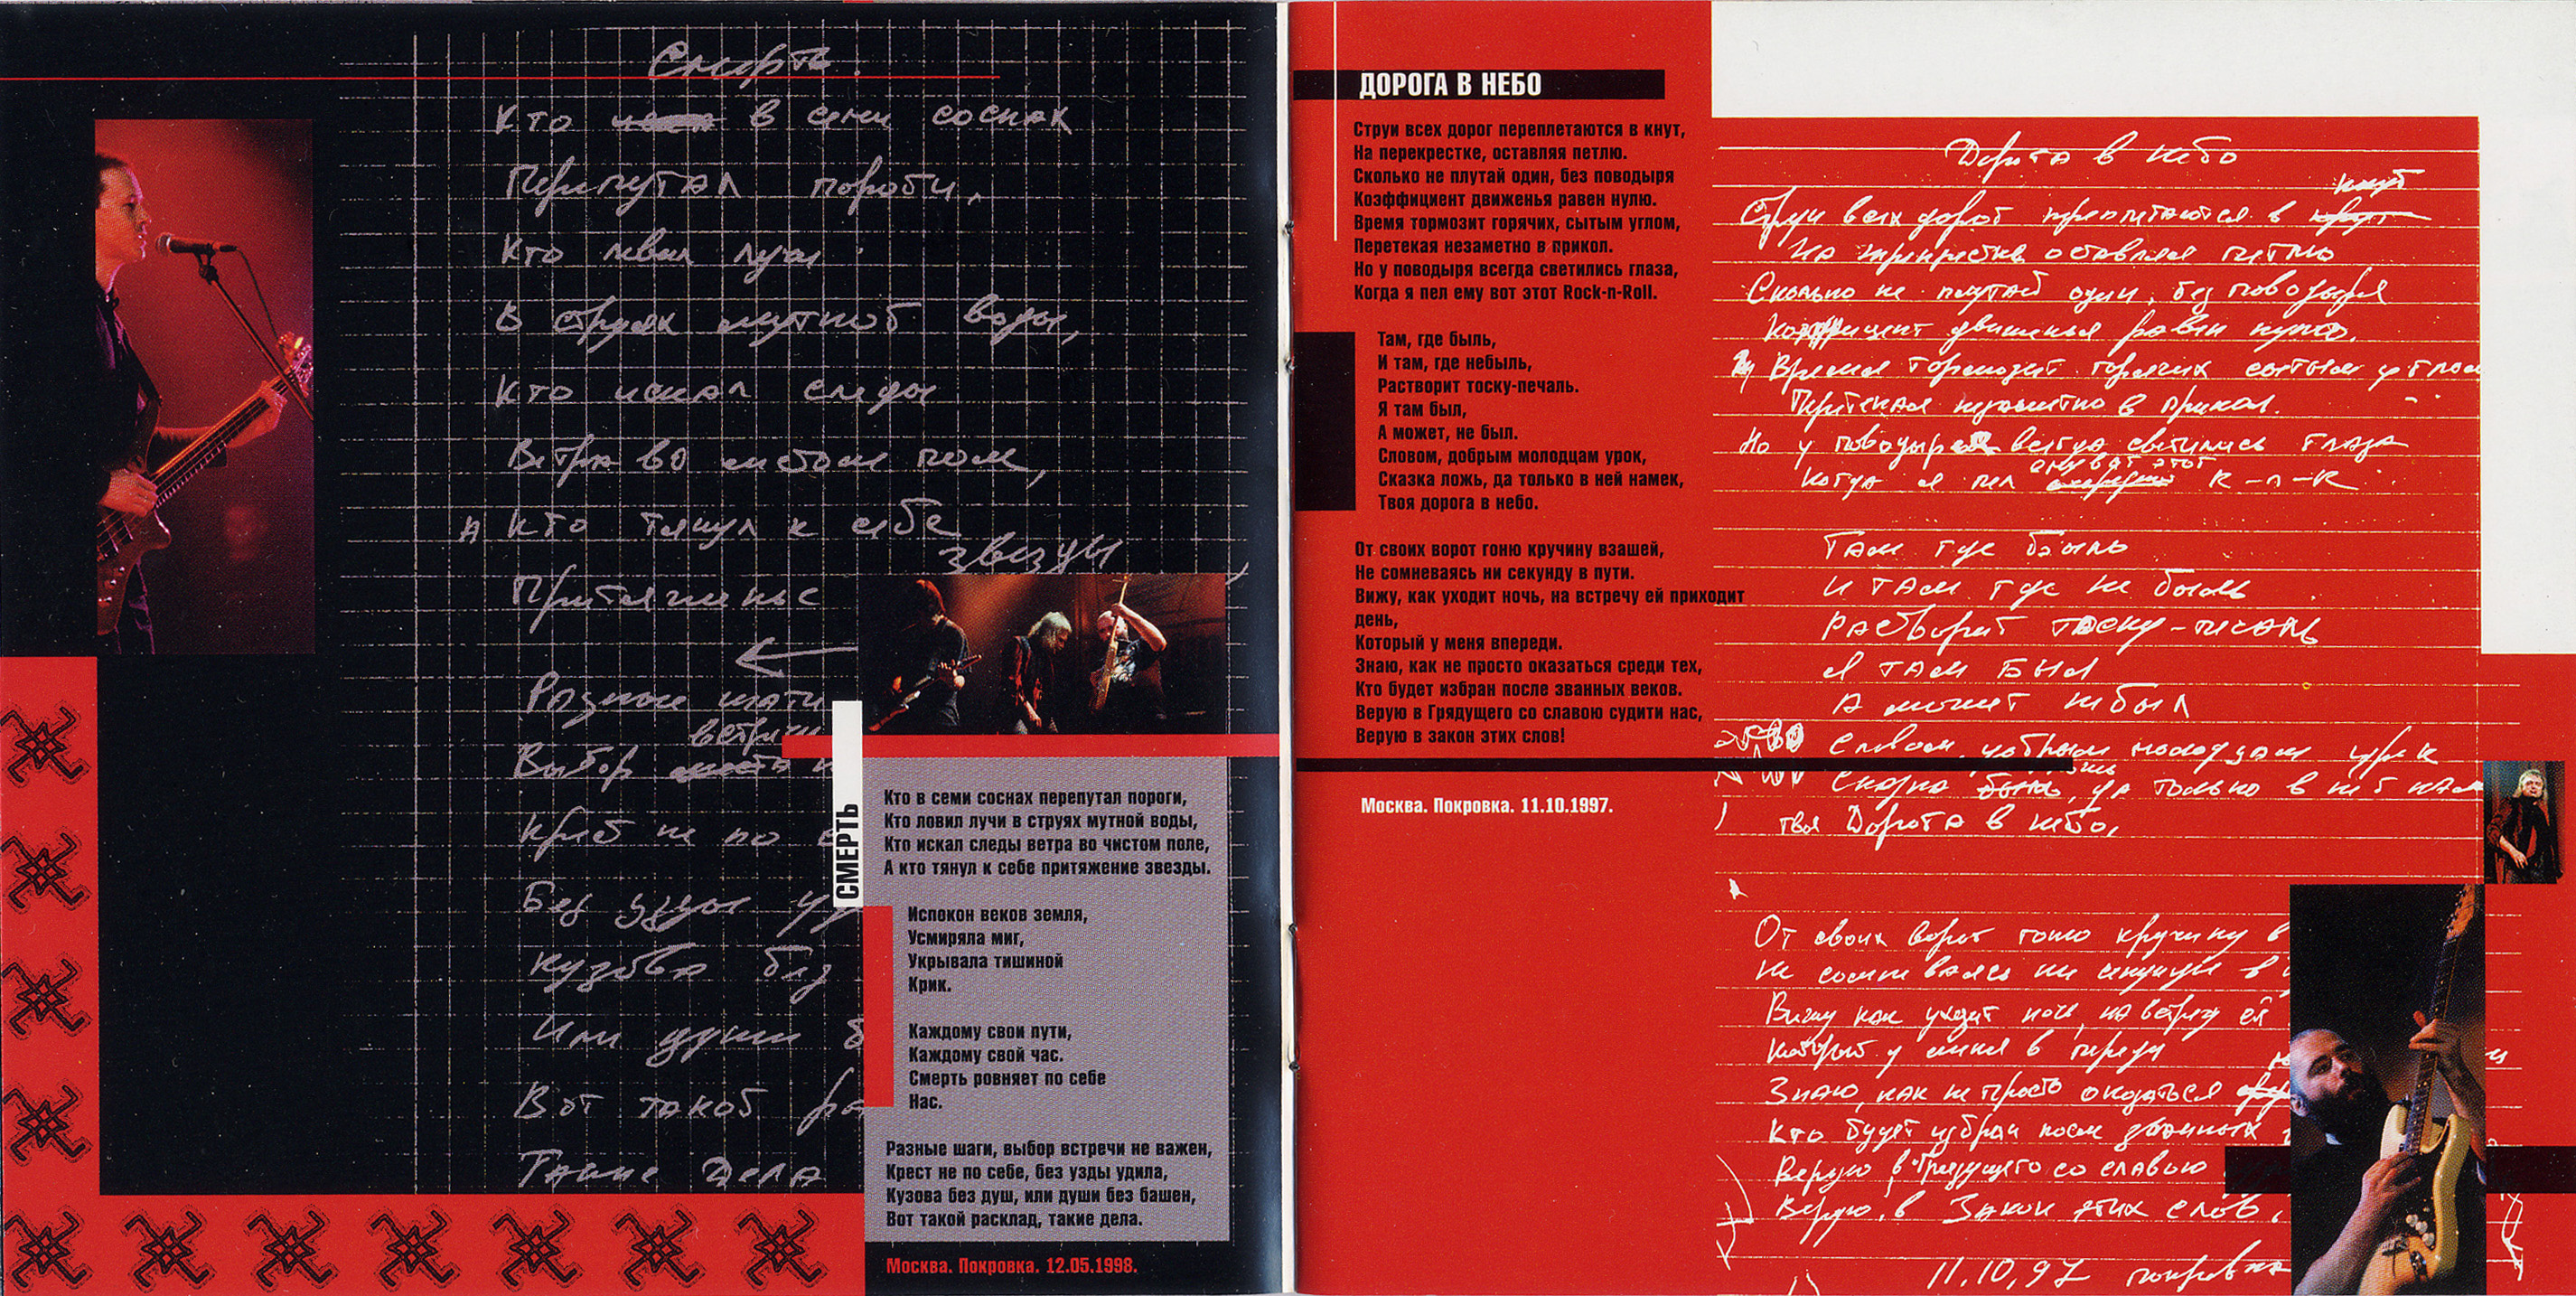 Смерть.
Кто в семи соснах
Перепутал пороги,
Кто ловил лучи
В струях мутной воды,
Кто искал следы
Ветра во чистом поле,
А Кто тянул к себе
звезды
Притяженье
Разные шаги
встречи
Выбор
Крест не по
Без узды
Кузова без
Или души б
Вот такой
Такие Дела
СМЕРТЬ
Кто в семи соснах перепутал пороги,
Кто ловил лучи в струях мутной воды,
Кто искал следы ветра во чистом поле,
А кто тянул к себе притяжение звезды.
Испокон веков земля,
Усмиряла миг,
Укрывала тишиной
Крик.
Каждому свои пути,
Каждому свой час.
Смерть ровняет по себе
Нас.
Разные шаги, выбор встречи не важен,
Крест не по себе, без узды удила,
Кузова без душ, или души без башен,
Вот такой расклад, такие дела.
Москва. Покровка. 12.05.1998.
ДОРОГА В НЕБО
Струи всех дорог переплетаются в кнут,
На перекрестке, оставляя петлю.
Сколько не плутай один, без поводыря
Коэффициент движенья равен нулю.
Время тормозит горячих, сытым углом,
Перетекая незаметно в прикол.
Но у поводыря всегда светились глаза,
Когда я пел ему вот этот Rock-n-Roll.
Там, где быль,
И там, где небыль,
Растворит тоску-печаль.
Я там был,
А может, не был.
Словом, добрым молодцам урок,
Сказка ложь, да только в ней намек,
Твоя дорога в небо.
От своих ворот гоню кручину взашей,
Не сомневаясь ни секунду в пути.
Вижу, как уходит ночь, на встречу ей приходит
день,
Который у меня впереди.
Знаю, как не просто оказаться среди тех,
Кто будет избран после званных веков.
Верую в Грядущего со славою судити нас,
Верую в закон этих слов!
Москва. Покровка. 11.10.1997.
Дорога в небо
кнут
Струи всех дорог переплетаются в
На перекрестке оставляя петлю
Сколько не плутай один, без поводыря
Коэффициент движенья равен нулю.
Время тормозит горячих сытым углом
Перетекая незаметно в прикол.
Но у поводыря всегда светились глаза
ему вот этот
Когда я пел R-n-R
Там где быль
И там где не быль
Растворит тоску-печаль
Я там был
А может не был
Словом, добрым молодцам урок
ложь
Сказка, да только в ней нам
твоя Дорога в небо,
От своих ворот гоню кручину в
Не сомневаясь ни секунду в
Вижу как уходит ночь, на встречу ей
Который у меня в переди
Знаю, как не просто оказаться
Кто будет избран после званных
Верую в Грядущего со славою
Верую, в Закон этих слов,
11.10.97 покровка